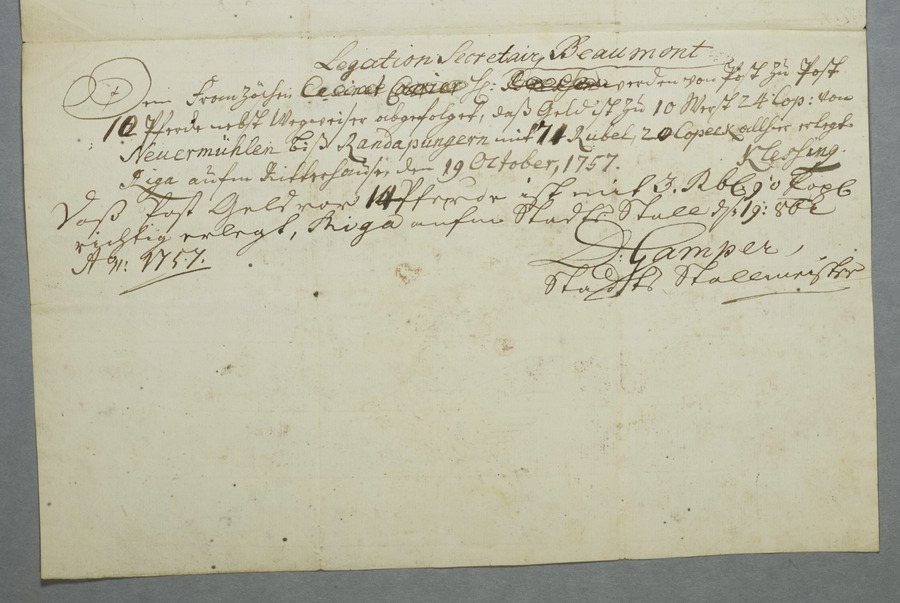 Legation Secretair, Beaumont
Dem Französchen Cabinet Courrier H: werden von Post zu Post
10 Pferde nebst Wegweiser abgefolget, daß Geld ist zu 10 Werst 24 Cop: von
Neuermühlen biß Randapungern mit 71 Rubel, 20 Copeek allhier erlegt
Riga aufm Ritterhause, den 19 October, 1757. Klessing.
Daß Post Geld vor 14 Pferde ist mit 3. Rbl 90 Kop
richtig erlegt, Riga aufm Stadts Stall d: 19: 8br
A n: 1757. D: Camper,
Stadts Stallmeister